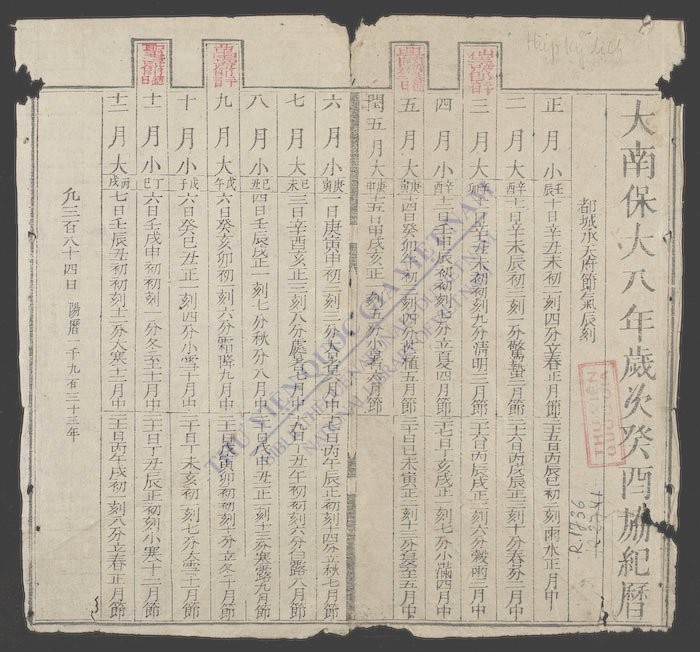 大南保大八年歲次癸酉協紀曆
都城承天府節氣辰刻
正月小壬辰十日辛丑未初初刻四分立春正月節二十五日丙辰巳初二刻雨水正月中
二月大辛酉十一日辛未辰初三刻一分驚蟄二月節二十六日丙戌辰正三刻十分春分二月中
三月大辛卯十一日辛丑未初初刻九分清明三月節二十六日丙辰戌正一刻六分穀雨三月中
四月小辛酉十二日壬申辰初初刻七分立夏四月節二十七日丁亥戌正一刻七分小滿四月中
五月大庚寅十四日癸卯午初二刻四分芒種五月節三十日己未寅正一刻十三分夏至五月中
閏五月大庚申十五日甲戌亥正一刻五分小暑六月節
六月小庚寅一日庚寅申初三刻三分大暑六月中十七日丙午辰正初刻十四分立秋七月節
七月大己未三日辛酉亥正三刻八分處暑七月中十九日丁丑午初初刻六分白露八月節
八月小己丑四日壬辰戌正一刻七分秋分八月中二十日戊申丑正二刻十三分寒露九月節
九月大戊午六日癸亥卯初二刻六分霜降九月中二十一日戊寅卯初初刻十三分立冬十月節
十月小戊子六日癸巳丑正一刻四分小雪十月中二十日丁未亥初一刻七分大雪十一月節
十一月小丁巳六日壬戌申初初刻一分冬至十一月中二十一日丁丑辰正初刻小寒十二月節
十二月大丙戌七日壬辰丑初初刻十一分大寒十二月中二十一日丙午戌初一刻八分立春正月節
凡三百八十四日 陽曆一千九百三十三年
Hiệp kỉ lịch
R.1736
THƯ VIỆN QUỐC GIA VIỆT NAM
BIBLIOTHÈQUE NATIONALE DU VIETNAM
NATIONAL LIBRARY OF VIETNAM